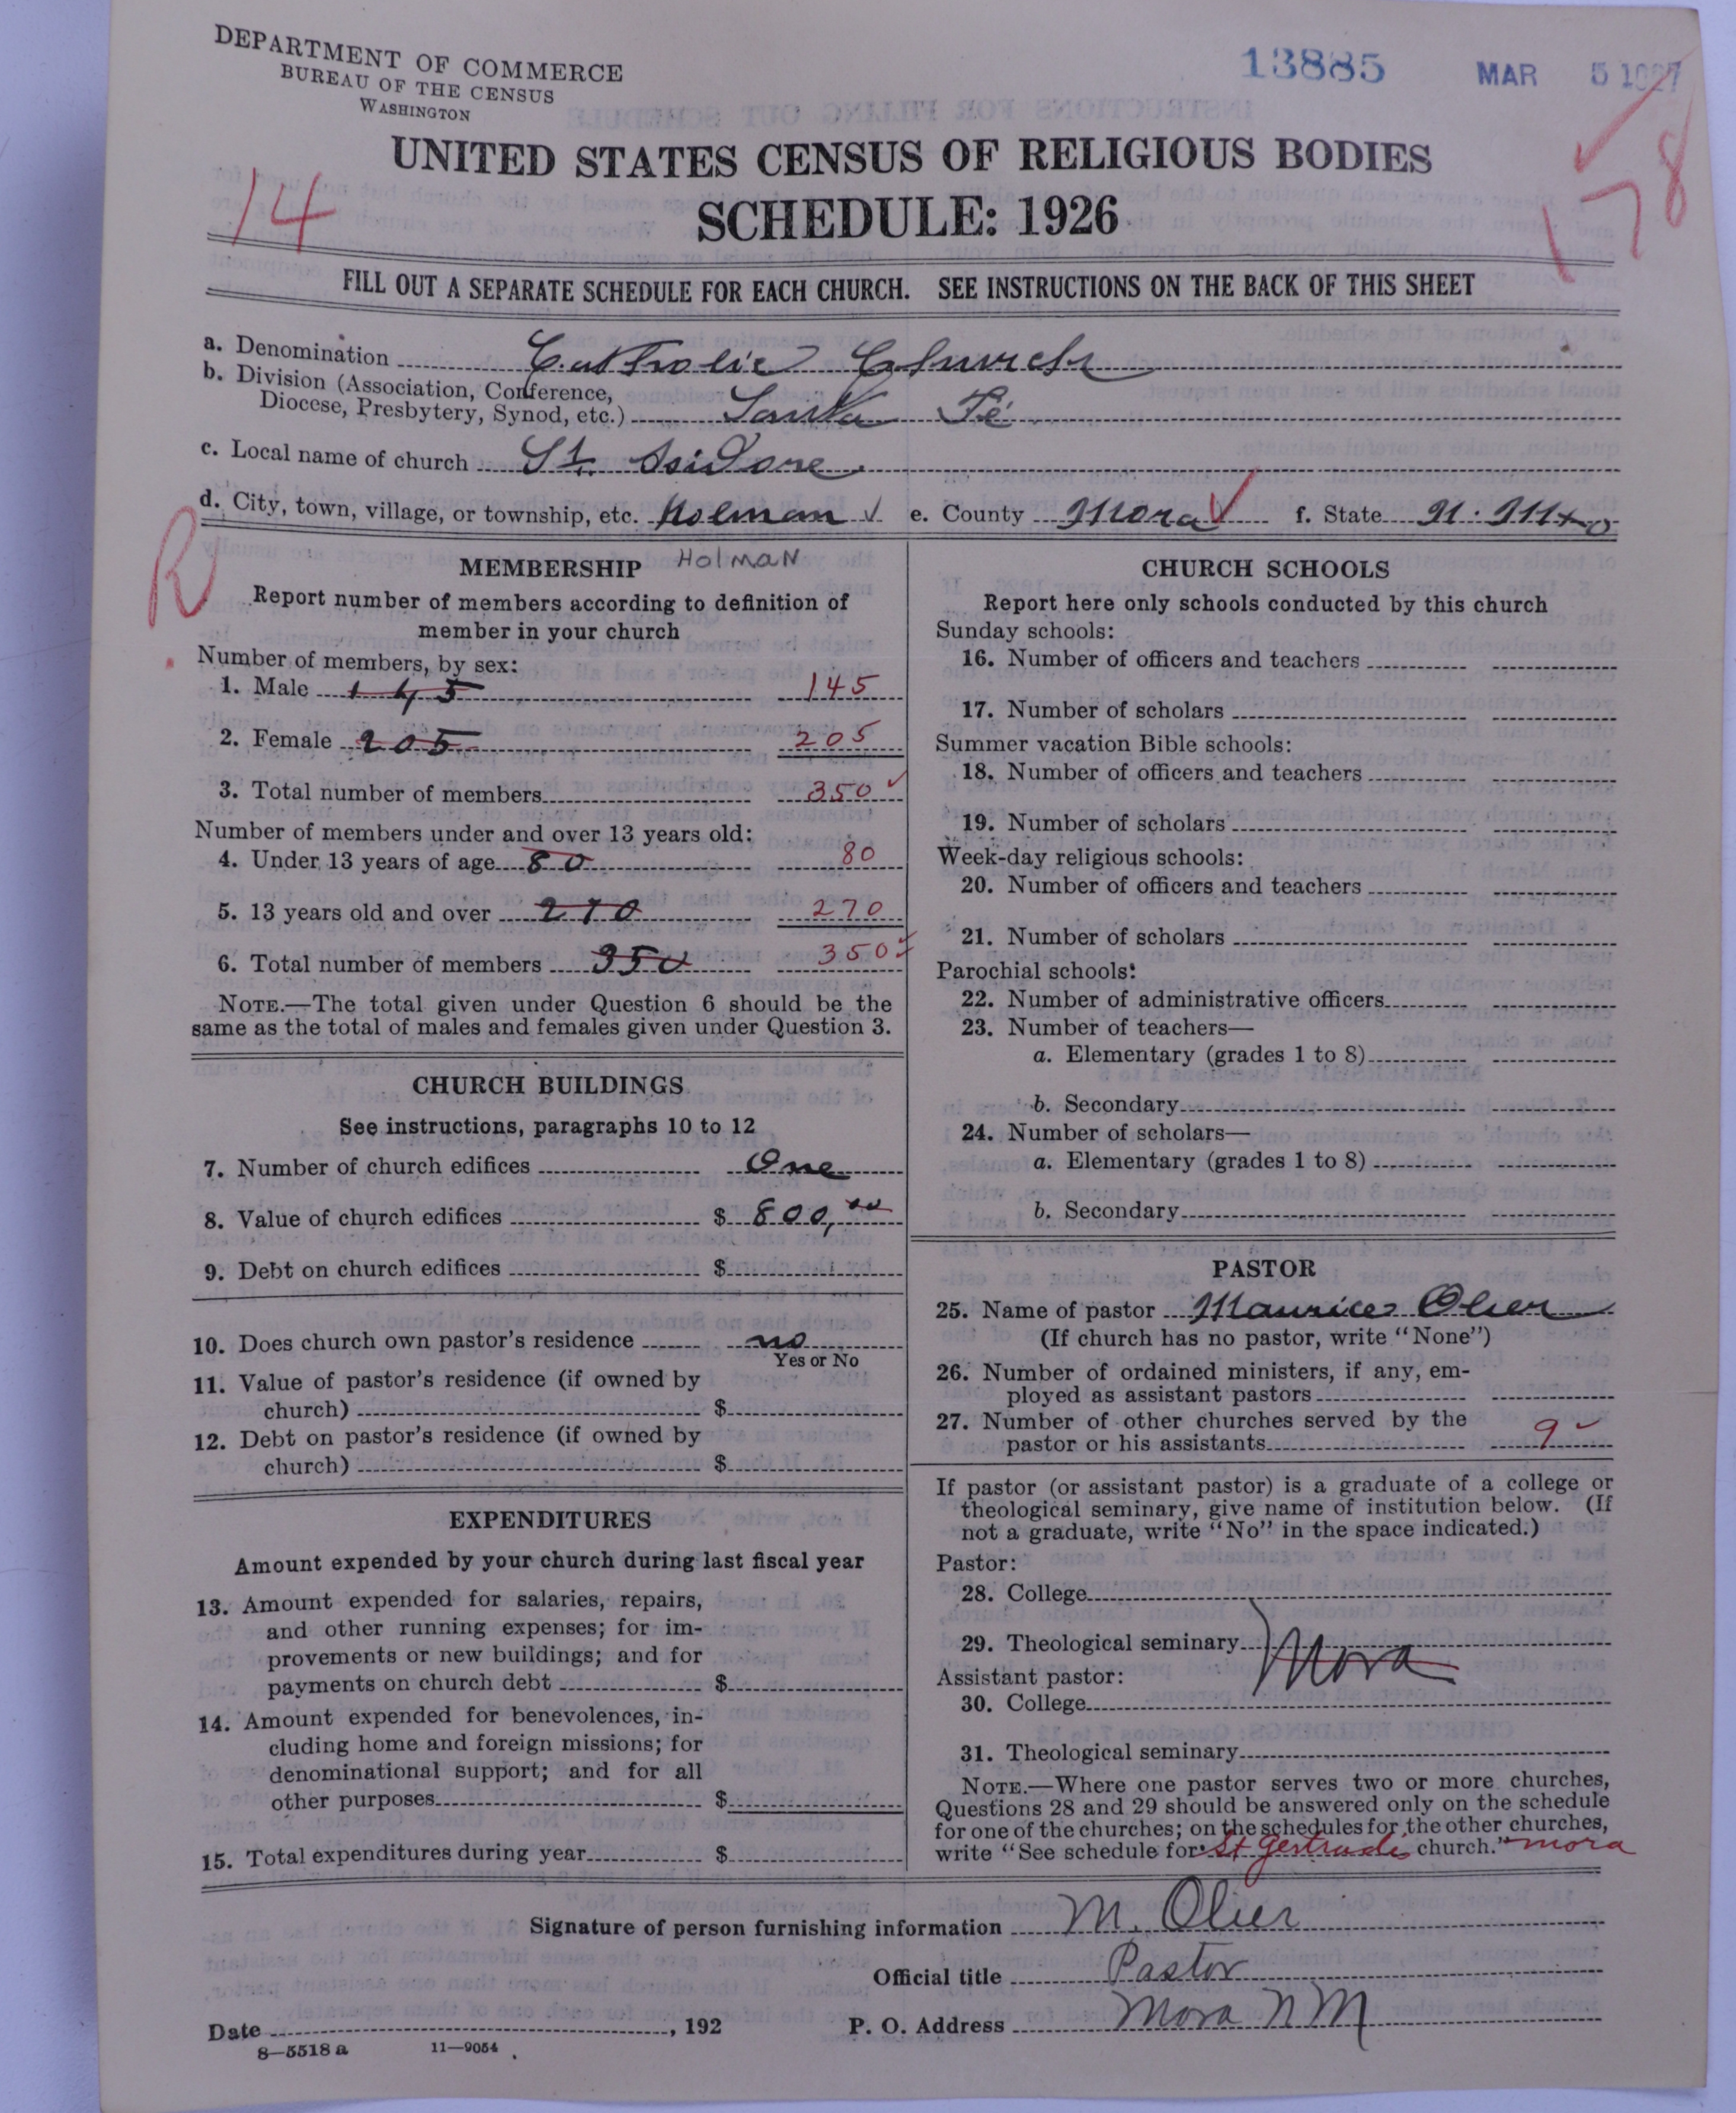 DEPARTMENT OF COMMERCE
BUREAU OF THE CENSUS
WASHINGTON
13885 MAR 5 1927
UNITED STATES CENSUS OF RELIGIOUS BODIES
14 SCHEDULE: 1926 178
FILL OUT A SEPARATE SCHEDULE FOR EACH CHURCH. SEE INSTRUCTIONS ON THE BACK OF THIS SHEET
a. Denomination Catholic Church
b. Division (Association, Conference,
Diocese, Presbytery, Synod, etc.) Santa Fé
c. Local name of church St. Isidore
d. City, town, village, or township, etc. Holman e. County Mora f. State N. Mexo
R
MEMBERSHIP Holman
Report number of members according to definition of
member in your church
Number of members, by sex:
1. Male 145 145
2. Female 205 205
3. Total number of members 350
Number of members under and over 13 years old:
4. Under 13 years of age 80 80
5. 13 years old and over 270 270
6. Total number of members 350 350
NOTE.—The total given under Question 6 should be the
same as the total of males and females given under Question 3.
CHURCH BUILDINGS
See instructions, paragraphs 10 to 12
7. Number of church edifices One
8. Value of church edifices $ 800,00
9. Debt on church edifices $
10. Does church own pastor's residence no
Yes or No
11. Value of pastor's residence (if owned by
church) $
12. Debt on pastor's residence (if owned by
church) $
EXPENDITURES
Amount expended by your church during last fiscal year
13. Amount expended for salaries, repairs,
and other running expenses; for im-
provements or new buildings; and for
payments on church debt $
14. Amount expended for benevolences, in-
cluding home and foreign missions; for
denominational support; and for all
other purposes $
15. Total expenditures during year $
CHURCH SCHOOLS
Report here only schools conducted by this church
Sunday schools:
16. Number of officers and teachers
17. Number of scholars
Summer vacation Bible schools:
18. Number of officers and teachers
19. Number of scholars
Week-day religious schools:
20. Number of officers and teachers
21. Number of scholars
Parochial schools:
22. Number of administrative officers
23. Number of teachers—
a. Elementary (grades 1 to 8)
b. Secondary
24. Number of scholars—
a. Elementary (grades 1 to 8)
b. Secondary
PASTOR
25. Name of pastor Maurice Olier
(If church has no pastor, write "None")
26. Number of ordained ministers, if any, em-
ployed as assistant pastors
27. Number of other churches served by the
pastor or his assistants 9
If pastor (or assistant pastor) is a graduate of a college or
theological seminary, give name of institution below. (If
not a graduate, write "No" in the space indicated.)
Pastor:
28. College
29. Theological seminary Mora
Assistant pastor:
30. College
31. Theological seminary
NOTE.—Where one pastor serves two or more churches,
Questions 28 and 29 should be answered only on the schedule
for one of the churches; on the schedules for the other churches,
write "See schedule for St Gertrude's church." Mora
Signature of person furnishing information M. Olier
Official title Pastor
Date , 192 P. O. Address Mora NM
8—5518 a 11—9054